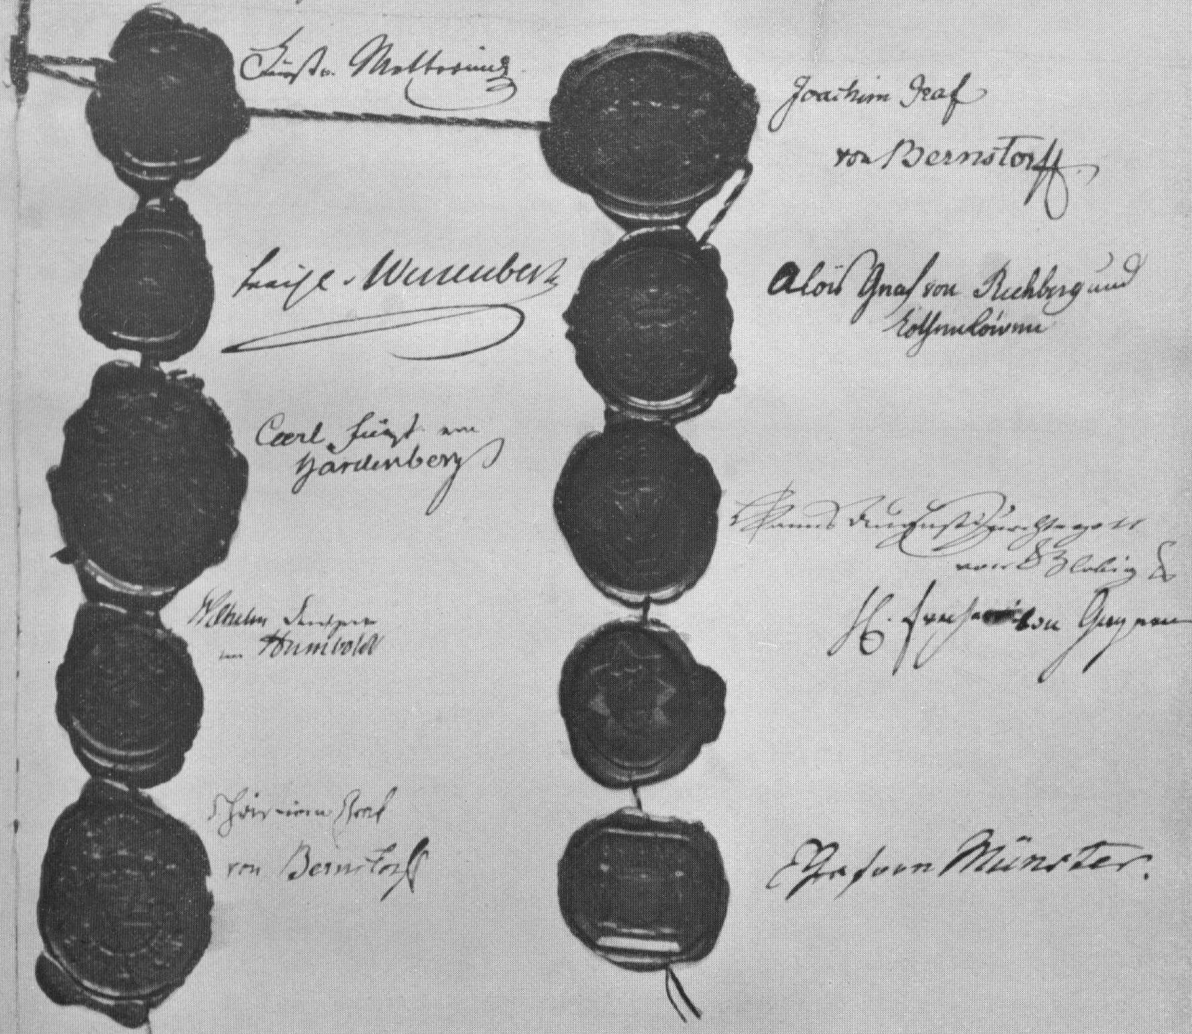 Fürst v. Metternich
v. Wessenberg
Carl Fürst von
Hardenberg
Wilhelm Freiherr
von Humboldt
Christian Graf
von Bernstorff
Joachim Graf
von Bernstorff
Alois Graf von Rechberg und
Rothenlöwen
Hanns August Fürchtegott
von Globig
H. Freiherr von Gagern
Graf von Münster.